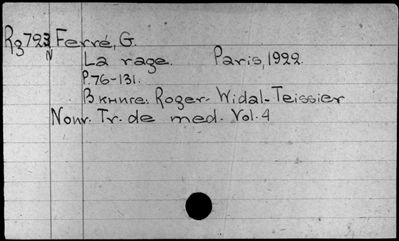 Rg723 Ferré, G.
N
La rage. Paris, 1922.
P. 76-131.
В книге: Roger- Widal-Teissier
Nouv. Tr. de med. Vol. 4